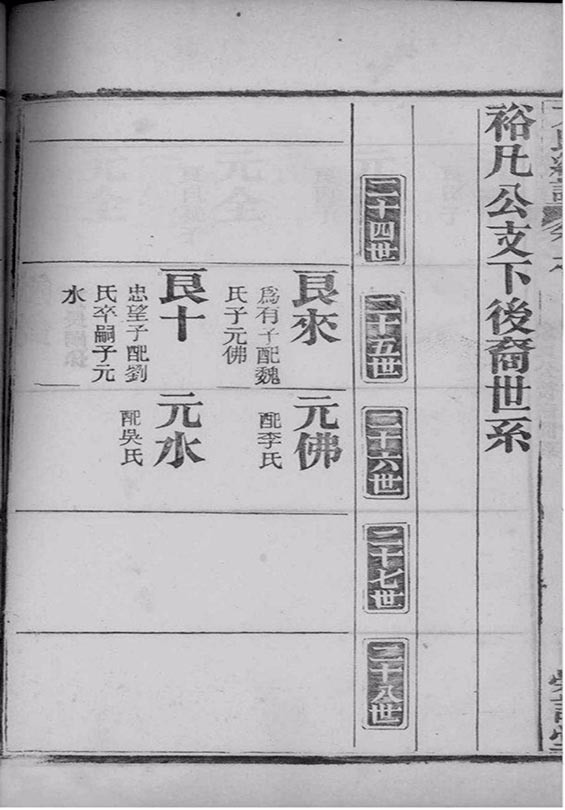 裕凡公支下後裔世系
二十四世
二十五世
二十六世
二十七世
二十八世
良來
爲有子配魏
氏子元佛
元佛
配李氏
良十
忠望子配劉
氏卒嗣子元
水
元水
配吳氏